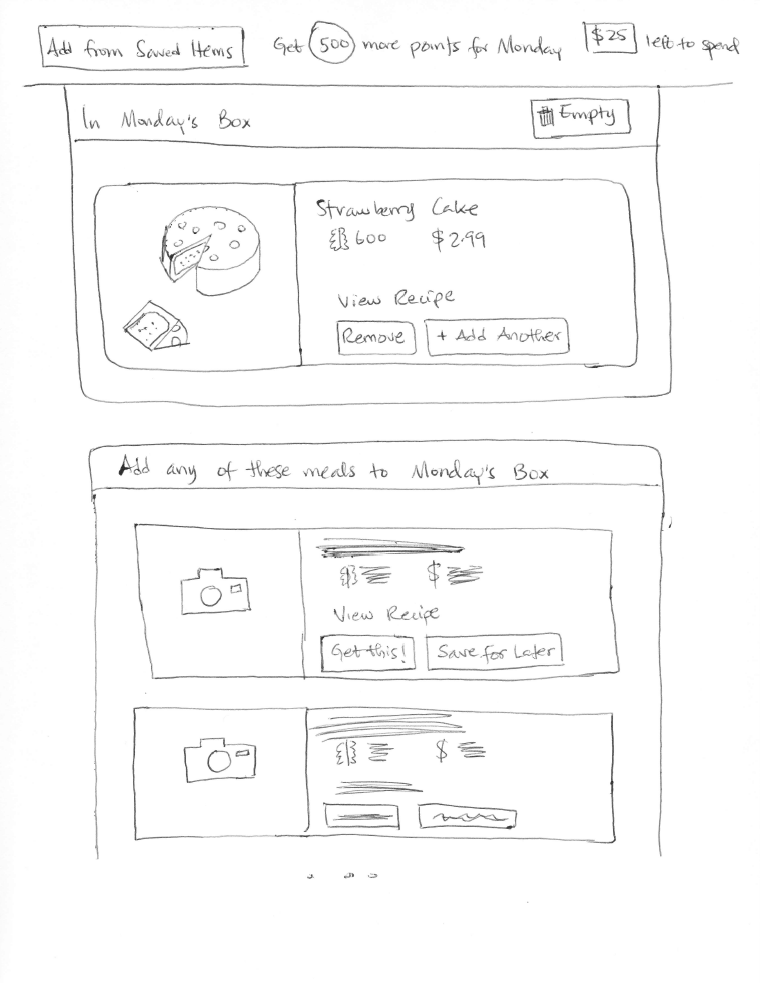 Add from Saved Items
Get 500 more points for Monday
$25 left to spend
In Monday's Box
Empty
Strawberry Cake
600 $2.99
View Recipe
Remove
+ Add Another
Add any of these meals to Monday's Box
$
View Recipe
Get this!
Save for Later
$